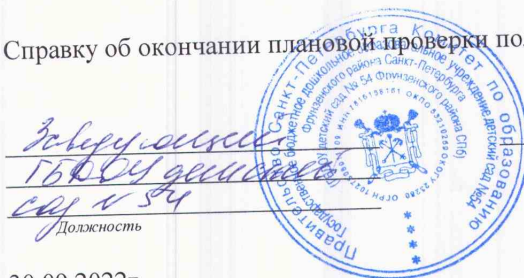 Справку об окончании плановой проверки по
Заведующий
ГБДОУ детский
сад № 54
Должность
Правительство Санкт-Петербурга Комитет по образованию
Государственное бюджетное дошкольное образовательное учреждение детский сад №54
Фрунзенского района Санкт-Петербурга
(детский сад № 54 Фрунзенского района СПб)
30.09.2022г